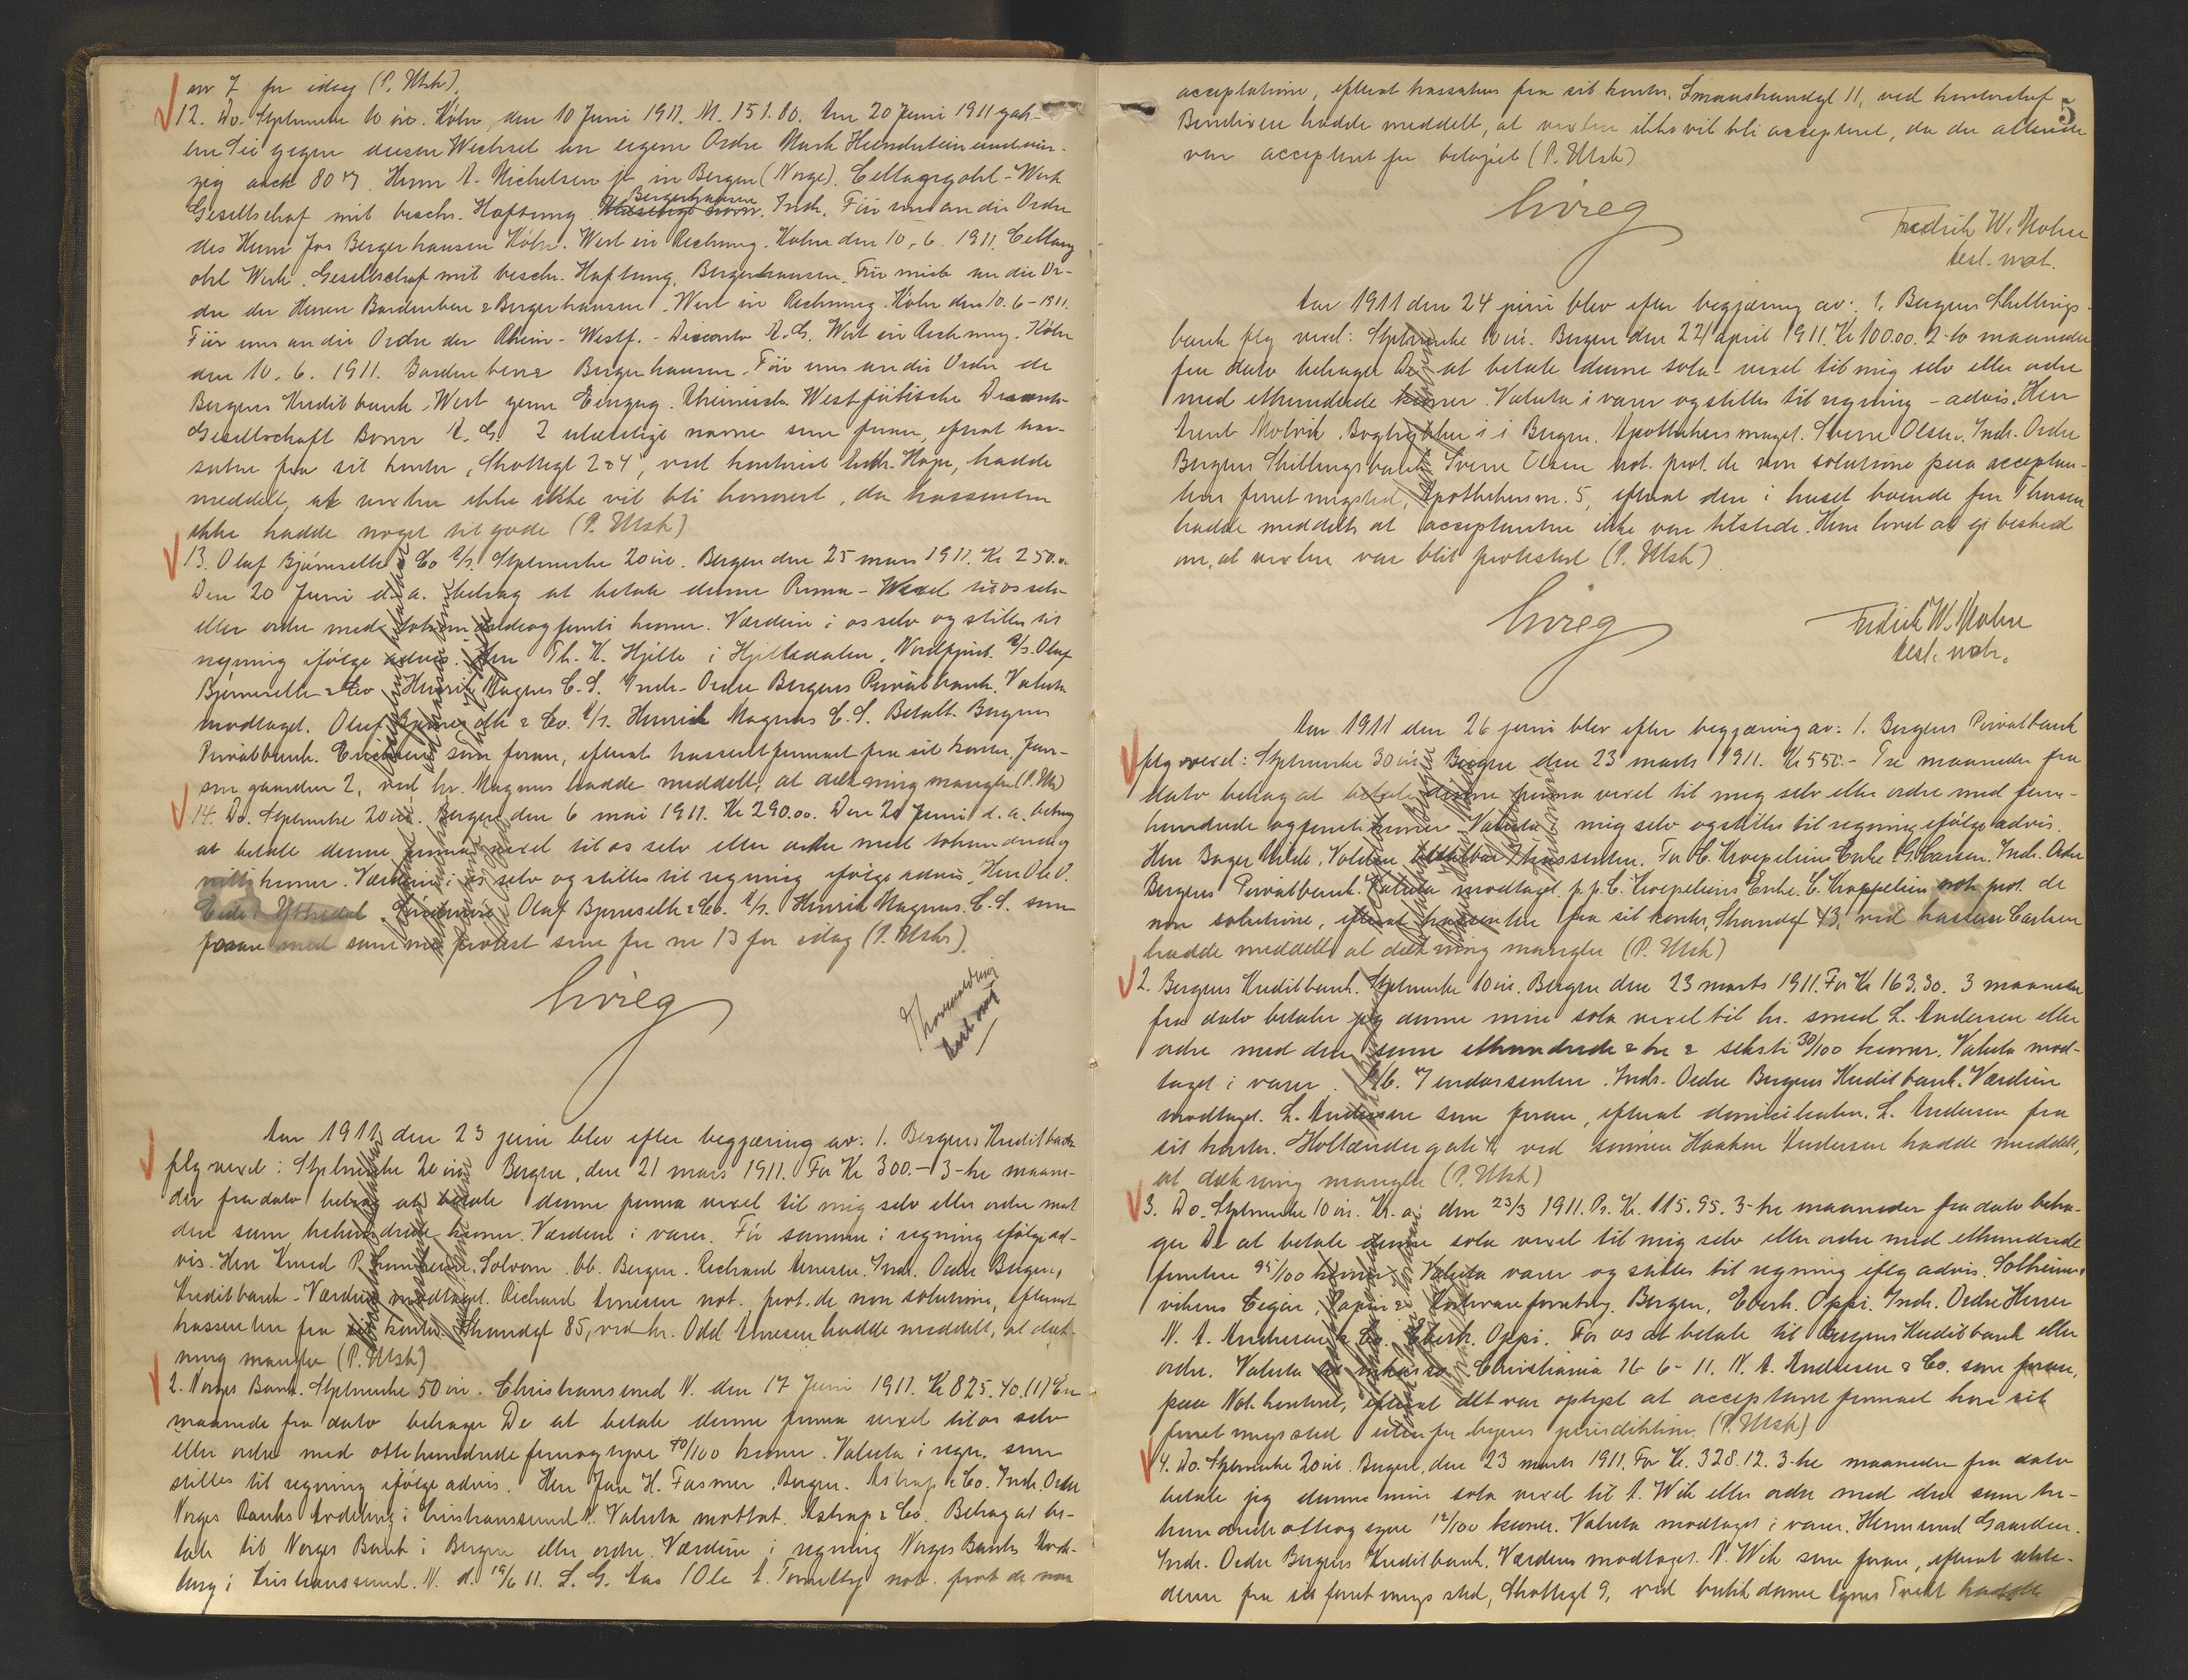 nr 7 for idag (P. Utsk).
12. Do. Stplmerke 10 øre. Köln, den 10 Juni 1911. M. 151.80. Am 20 Juni 1911 zah-
len Sie gegen diesen Wechsel an eigene Ordre Mark Hundertein und
zig auch 80 Herrn A. Michelsen jr in Bergen (Norge). Cellargzohl-Werk
Gesellschaf mit beschr. Haftung. Bergerhausen. Indr. Für uns an die Ordre
des Herrn Jos Bergerhausen Köln. Wert in Rechnung. Köln den 10.6.1911. Cellarg
ohl Werk. Gesellschaf mit beschr. Haftung. Bergerhausen. Für mich an die Or-
dre der Herren Bardenben & Bergerhausen. Wert in Rechnung. Köln den 10.6-1911.
Für uns an die Ordre der Rhein-Westf.-Disconto A.G. Wert in Rechnung. Köln
den 10.6.1911. Bardenben & Bergerhausen. Für uns an die Ordre de
Bergens Kreditbank. Wert zum Einzug. Rheinisch Westfälische Disconto
Gesellschaft Bonn A.G. 2 ulæselige navne som foran, efterat tras-
saten fra sit kontor, Strandgt 2 & 4, ved kontorist Hope, hadde
meddelt, at vexlen ikke ikke vil bli honorert, da trassenten
ikke hadde noget tilgode (P. Utsk)
13. Olaf Bjørnseth & Co A/s. Stplmerke 20 øre. Bergen den 25 mars 1911. Kr 250.00
Den 20 Juni d. a. behag at betale denne Prima-Wexel til os selv
eller ordre med tohundredeogfemti kroner. Værdien i os selv og stilles til
regning ifølge advis. Herr Th. K. Hjelle i Hjelledalen, Nordfjord. A/s. Olaf
Bjørnseth & Co Henrik Magnus C.S. Indr. Ordre Bergens Privatbank. Valuta
modtaget. Olaf Bjørnseth & Co. A/s. Henrik Magnus C.S. Betalt Bergens
Privatbank. som foran, efterat trassentfirmaet fra sit kontor, Jon-
sen gaarden 2, ved hr. Magnus hadde meddelt, at dækning mangler (P. Utsk)
14. Do. Stplmerke 20 øre. Bergen den 6 mai 1911. Kr 290.00. Den 20 Juni d. a. behag
at betale denne prima vexel til os selv eller ordre med tohundredeog
nitti kroner. Værdien i os selv og stilles til regning ifølge advis. Herr Ole O.
Olaf Bjørnseth & Co. A/s. Henrik Magnus. C.S. som
foran med samme protest som for nr 13 for idag (P. Utsk).
Aar 1911 den 23 juni blev efter begjæring av: 1. Bergens Kreditbank
flg vexel: Stplmerke 20 øre Bergen, den 21 mars 1911. For Kr 300.- 3-tre maane-
der fra dato behag at betale denne prima vexel til mig selv eller ordre med
den sum trehundrede kroner. Værdien i varer. Før samme i regning ifølge ad-
vis. Herr Knud P. Solvorn. bb. Bergen. Richard Arnesen. Indr. Ordre Bergens
Kreditbank - Værdien modtaget. Richard Arnesen not. prot. de non solutione, efterat
trassenten fra sit kontor. Strandgt 85, ved hr. Odd Arnesen hadde meddelt, at dæk-
ning mangler (P. Utsk)
2. Norges Bank. Stplmerke 50 øre. Christiansund N. den 17 Juni 1911. Kr 825.40. (1) En
maaned fra dato behager De at betale denne prima vexel til os selv
eller ordre med ottehundredefemogtyve 40/100 kroner. Valuta i regn. som
stilles til regning ifølge advis. Herr Jan H. Fasmer, Bergen. Astrup & Co. Indr. Ordre
Norges Banks Avdeling i Kristianssund N. Valuta mottat. Astrup & Co. Behag at be-
tale til Norges Bank i Bergen eller ordre. Værdien i regning Norges Banks Avde-
ling i Kristianssund. N. d. 19/6 11. L. G. Aas / Ole A. not. prot de non
5
acceptatione, efterat trassaten fra sit kontor. Smaastrandgt 11, ved kontorchef
Bendixen hadde meddelt, at vexlen ikke vil bli acceptert, da der allerede
var acceptert for beløpet (P. Utsk)
Fredrik W. Mohn
best. not.
Aar 1911 den 24 juni blev efter begjæring av: 1. Bergens Skillings-
bank flg vexel: Stplmerke 10 øre. Bergen den 22/ april 1911. Kr 100.00. 2-to maaneder
fra dato behager De at betale denne sola-vexel til mig selv eller ordre
med ethundrede kroner. Valuta i varer og stilles til regning - advis. Herr
Arent Molvik. Bogtrykker i i Bergen. Apothekersmuget. Sverre Olsen. Indr. Ordre
Bergens Skillingsbank Sverre Olsen not. prot. de non solutione paa acceptan-
tens forretningssted, Apothekersm. 5, efterat den i huset boende fru Thorsen
hadde meddelt at acceptanten ikke var tilstede. Hun lovet at gi besked
om, at vexlen var blit protestert (P. Utsk)
Fredrik W. Mohn
best. not.
Aar 1911 den 26 juni blev efter begjæring av: 1. Bergens Privatbank
flg vexel: Stplmerke 30 øre Bergen den 23 marts 1911. Kr 550.- Tre maaneder fra
dato behag at betale denne prima vexel til mig selv eller ordre med fem-
hundrede og femti kroner Valuta i mig selv og stilles til regning ifølge advis.
Herr Bager Milde, Volden trassenten. For C. Kroepeliens Enke G. Carsen. Indr. Ordre
Bergens Privatbank. Valuta modtaget. p.p. C. Kroepeliens Enke. C. Kroppelien not. prot. de
non solutione, efterat trassenten fra sit kontor, Strandgt 43, ved kasserer Carlsen
hadde meddelt at dækning mangler (P. Utsk)
2. Bergens Kreditbank. Stplmerke 10 øre. Bergen den 23 marts 1911. For Kr 163,30. 3 maaneder
fra dato betaler jeg denne min sola vexel til hr. smed L. Andersen eller
ordre med den sum ethundrede & tre & seksti 30/100 kroner. Valuta mod-
taget i varer. endossenten. Indr. Ordre Bergens Kreditbank. Værdien
modtaget. L. Andersen som foran, efterat domiciliaten. L. Andersen fra
sit kontor. Hollændergaten ved sønnen Haakon Andersen hadde meddelt,
at dækning mangler (P. Utsk)
3. Do. Stplmerke 10 øre. Kr.a. den 23/3 1911. Pr. Kr. 115.95. 3-tre maaneder fra dato beha-
ger De at betale denne sola vexel til mig selv eller ordre med ethundrede
femten 95/100 kroner. Valuta varer og stilles til regning iflg advis. Solheims-
vikens Cigar, Papir & Kortevareforretng. Bergen, Eberh. Oppi. Indr. Ordre Herrer
N. A. Andresen & Co. Eberh. Oppi. For os at betale til Bergens Kreditbank eller
ordre. Valuta til inkasso. Christiania 16-6-11. N. A. Andresen & Co. som foran,
paa Not. kontoret, efterat det var oplyst at acceptant firmaet har sit
forretningssted utenfor byens jurisdiktion. (P. Utsk)
4. Do. Stplmerke 20 øre. Bergen, den 23 marts 1911. For Kr. 328.12. 3-tre maaneder fra dato
betale jeg denne min sola vexel til A. Wik eller ordre med den sum tre-
hundrede otteogtyve 12/100 kroner. Valuta modtaget i varer. Hermund Gaarden.
Indr. Ordre Bergens Kreditbank. Værdien modtaget. A. Wik som foran, efterat
fra sit forretnings sted, Strandgt 9, ved butikdame Agnes Tveit hadde